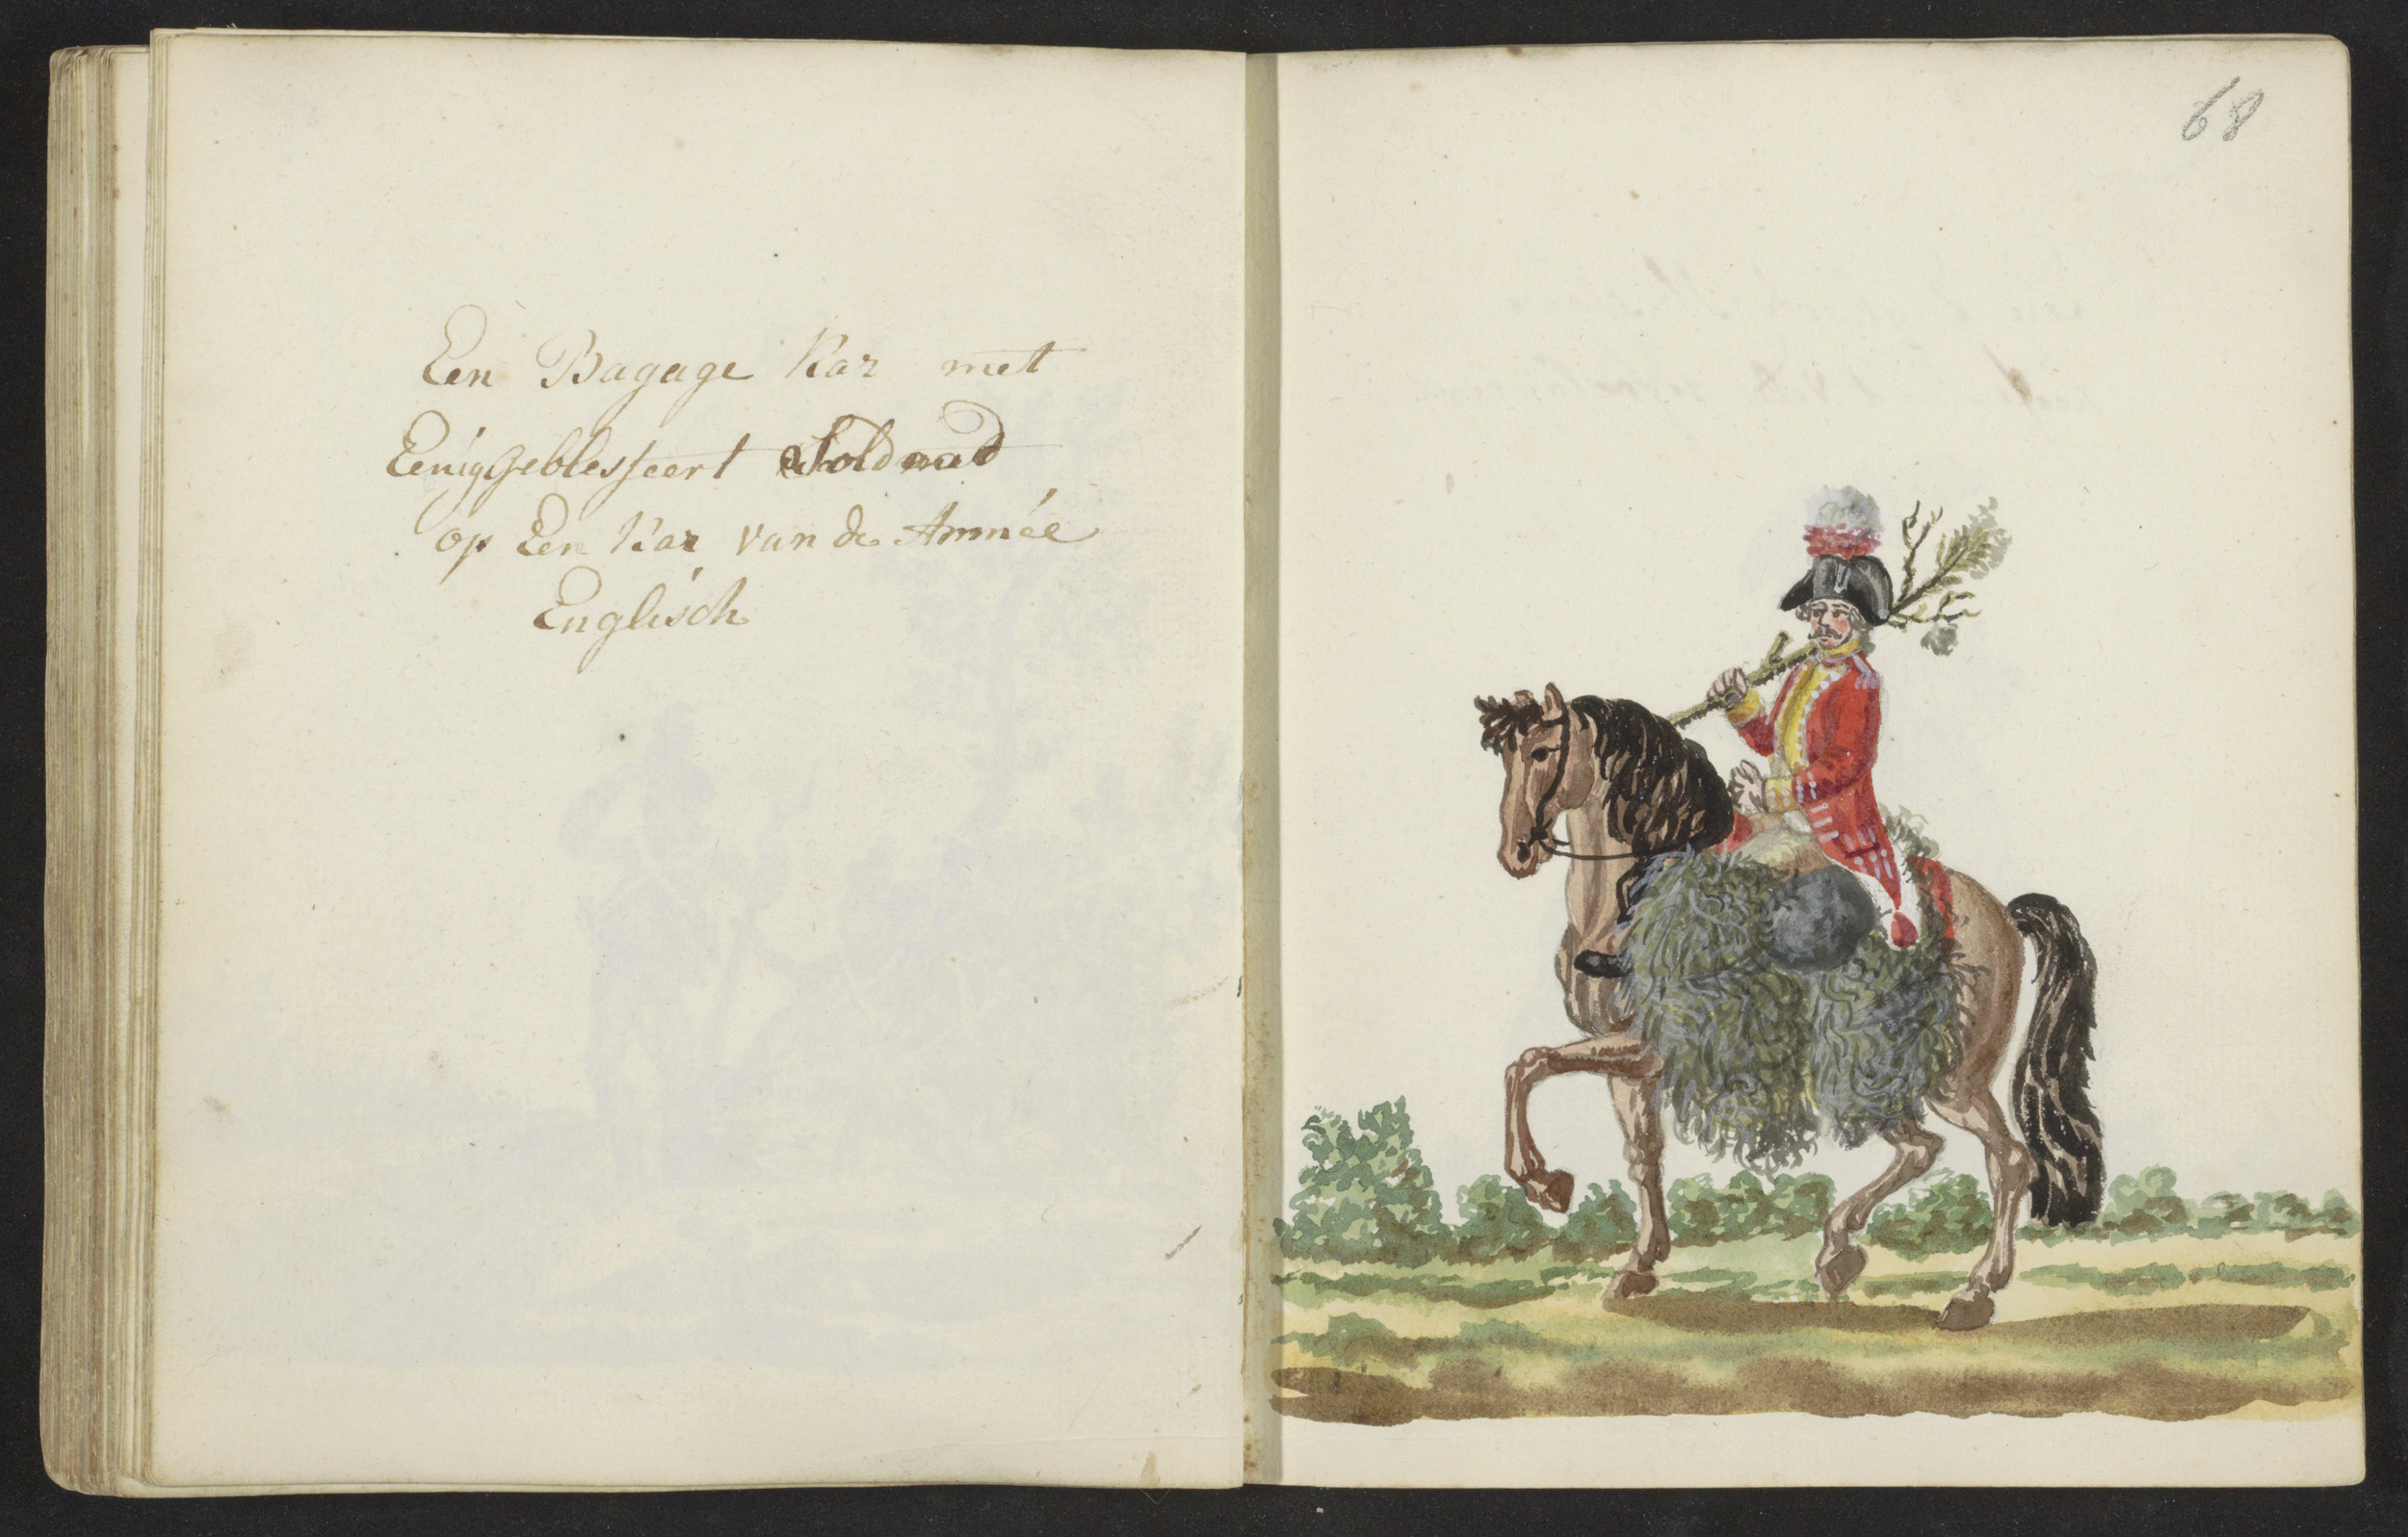 Een Bagage Kar met
Eenig Geblesseert Soldaad
op Een Kar van de Armée
Englisch
68